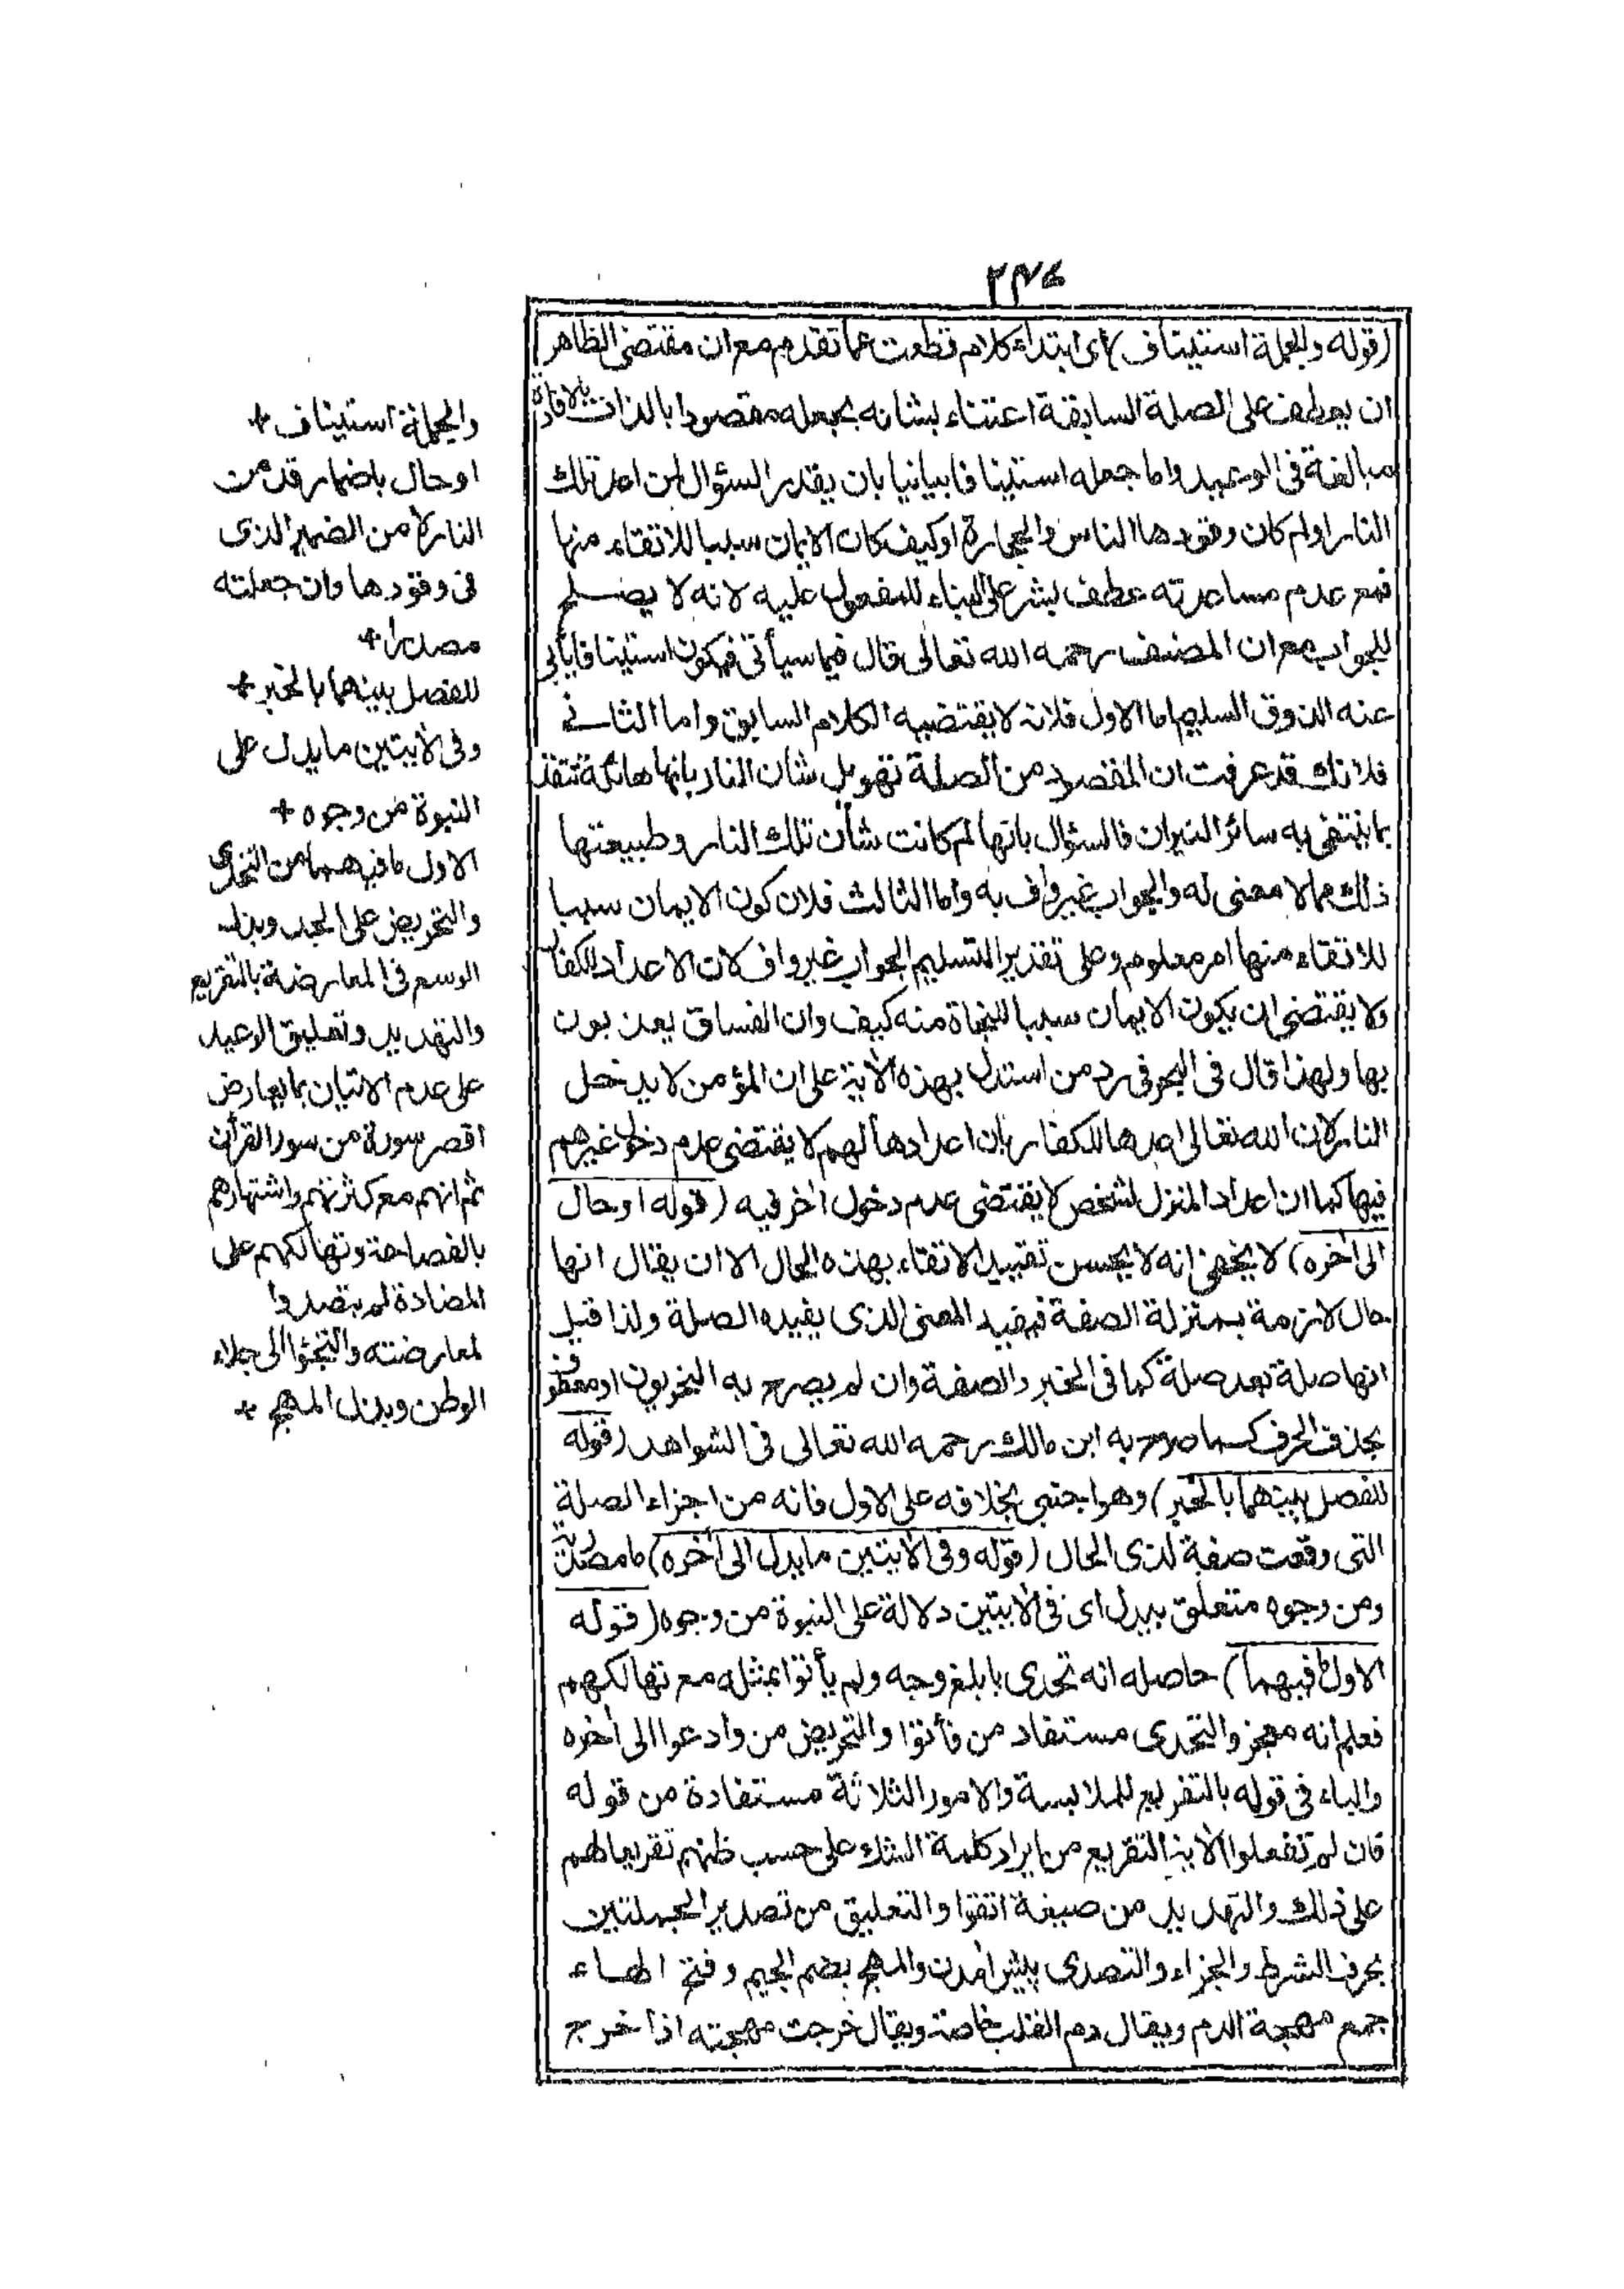 (قوله والجملة استيناف) اى ابتداء كلام قطعت عما تقدم مع ان مقتضى الظاهر
ان يعطف على الصلة السابقة اعتناء بشانه بجعله مقصودا بالذات بالافادة
مبالغة فى الوعيد واما جعله استينافا بيانيا بان يقدر السؤال لمن اعدت تلك
النار او لم كان وقودها الناس والحجارة او كيف كان الايمان سببا للاتقاء منها
فمع عدم مساعدته عطف بشر على البناء للمفعول عليه لانه لا يصلح
للجواب مع ان المصنف رحمه الله تعالى قال فيما سيأتى فيكون استينافا يأبى
عنه الذوق السليم اما الاول فلانه لا يقتضيه الكلام السابق واما الثانى
فلانك قد عرفت ان المقصود من الصلة تهويل شان النار بانها هائلة تتقد
بما ينتفى به سائر النيران فالسؤال بانها لم كانت شأن تلك النار وطبيعتها
ذلك مما لا معنى له والجواب غير واف به واما الثالث فلان كون الايمان سببا
للاتقاء منها امر معلوم وعلى تقدير التسليم الجواب غير واف لان الاعداد للكفار
ولا يقتضى ان يكون الايمان سببا للنجاة منه كيف وان الفساق يعذبون
بها ولهذا قال فى البحر فى رد من استدل بهذه الأية على ان المؤمن لا يدخل
النار لان الله تعالى اعدها للكفار بان اعدادها لهم لا يقتضى عدم دخول غيرهم
فيها كما ان اعداد المنزل لشخص لا يقتضى عدم دخول أخر فيه (قوله او حال
الى أخره) لا يخفى انه لا يحسن تقييد الاتقاء بهذه الحال الا ان يقال انها
حال لازمة بمنزلة الصفة فيفيد المعنى الذى يفيده الصلة ولذا قيل
انها صلة بعد صلة كما فى الخبر والصفة وان لم يصرح به النحويون او معطوفة
بحذف الحرف كما صرح به ابن مالك رحمه الله تعالى فى الشواهد (قوله
للفصل بينهما بالخبر) وهو اجنبى بخلافه على الاول فانه من اجزاء الصلة
التى وقعت صفة لذى الحال (قوله وفى الأيتين ما يدل الى أخره) ما مصدرية
ومن وجوه متعلق بيدل اى فى الأيتين دلالة على النبوة من وجوه (قوله
الاول ما فيهما) حاصله انه تحدى بابلغ وجه ولم يأتوا بمثله مع تهالكهم
فعلم انه معجز والتحدى مستفاد من فأتوا والتحريض من وادعوا الى أخره
والباء فى قوله بالتقريع للملابسة والامور الثلاثة مستفادة من قوله
فان لم تفعلوا الأية التقريع من ايراد كلمة الشك على حسب ظنهم تقريعا لهم
على ذلك والتهديد من صيغة اتقوا والتعليق من تصدير الجملتين
بحرف الشرط والجزاء والتصدى پيش آمدن والمهج بضم الميم وفتح الهاء
جمع مهجة الدم ويقال دم القلب خاصة ويقال خرجت مهجته اذا خرج
والجملة استيناف
او حال باضمار قد من
النار لا من الضمير الذى
فى وقودها وان جعلته
مصدرا
للفصل بينهما بالخبر
وفى الأيتين ما يدل على
النبوة من وجوه
الاول ما فيهما من التحدى
والتحريض على الجد وبذل
الوسع فى المعارضة بالتقريع
والتهديد وتعليق الوعيد
على عدم الاتيان بما يعارض
اقصر سورة من سور القرأن
ثم انهم مع كثرتهم واشتهارهم
بالفصاحة وتهالكهم على
المضادة لم يتصدوا
لمعارضته والتجئوا الى جلاء
الوطن وبذل المهج